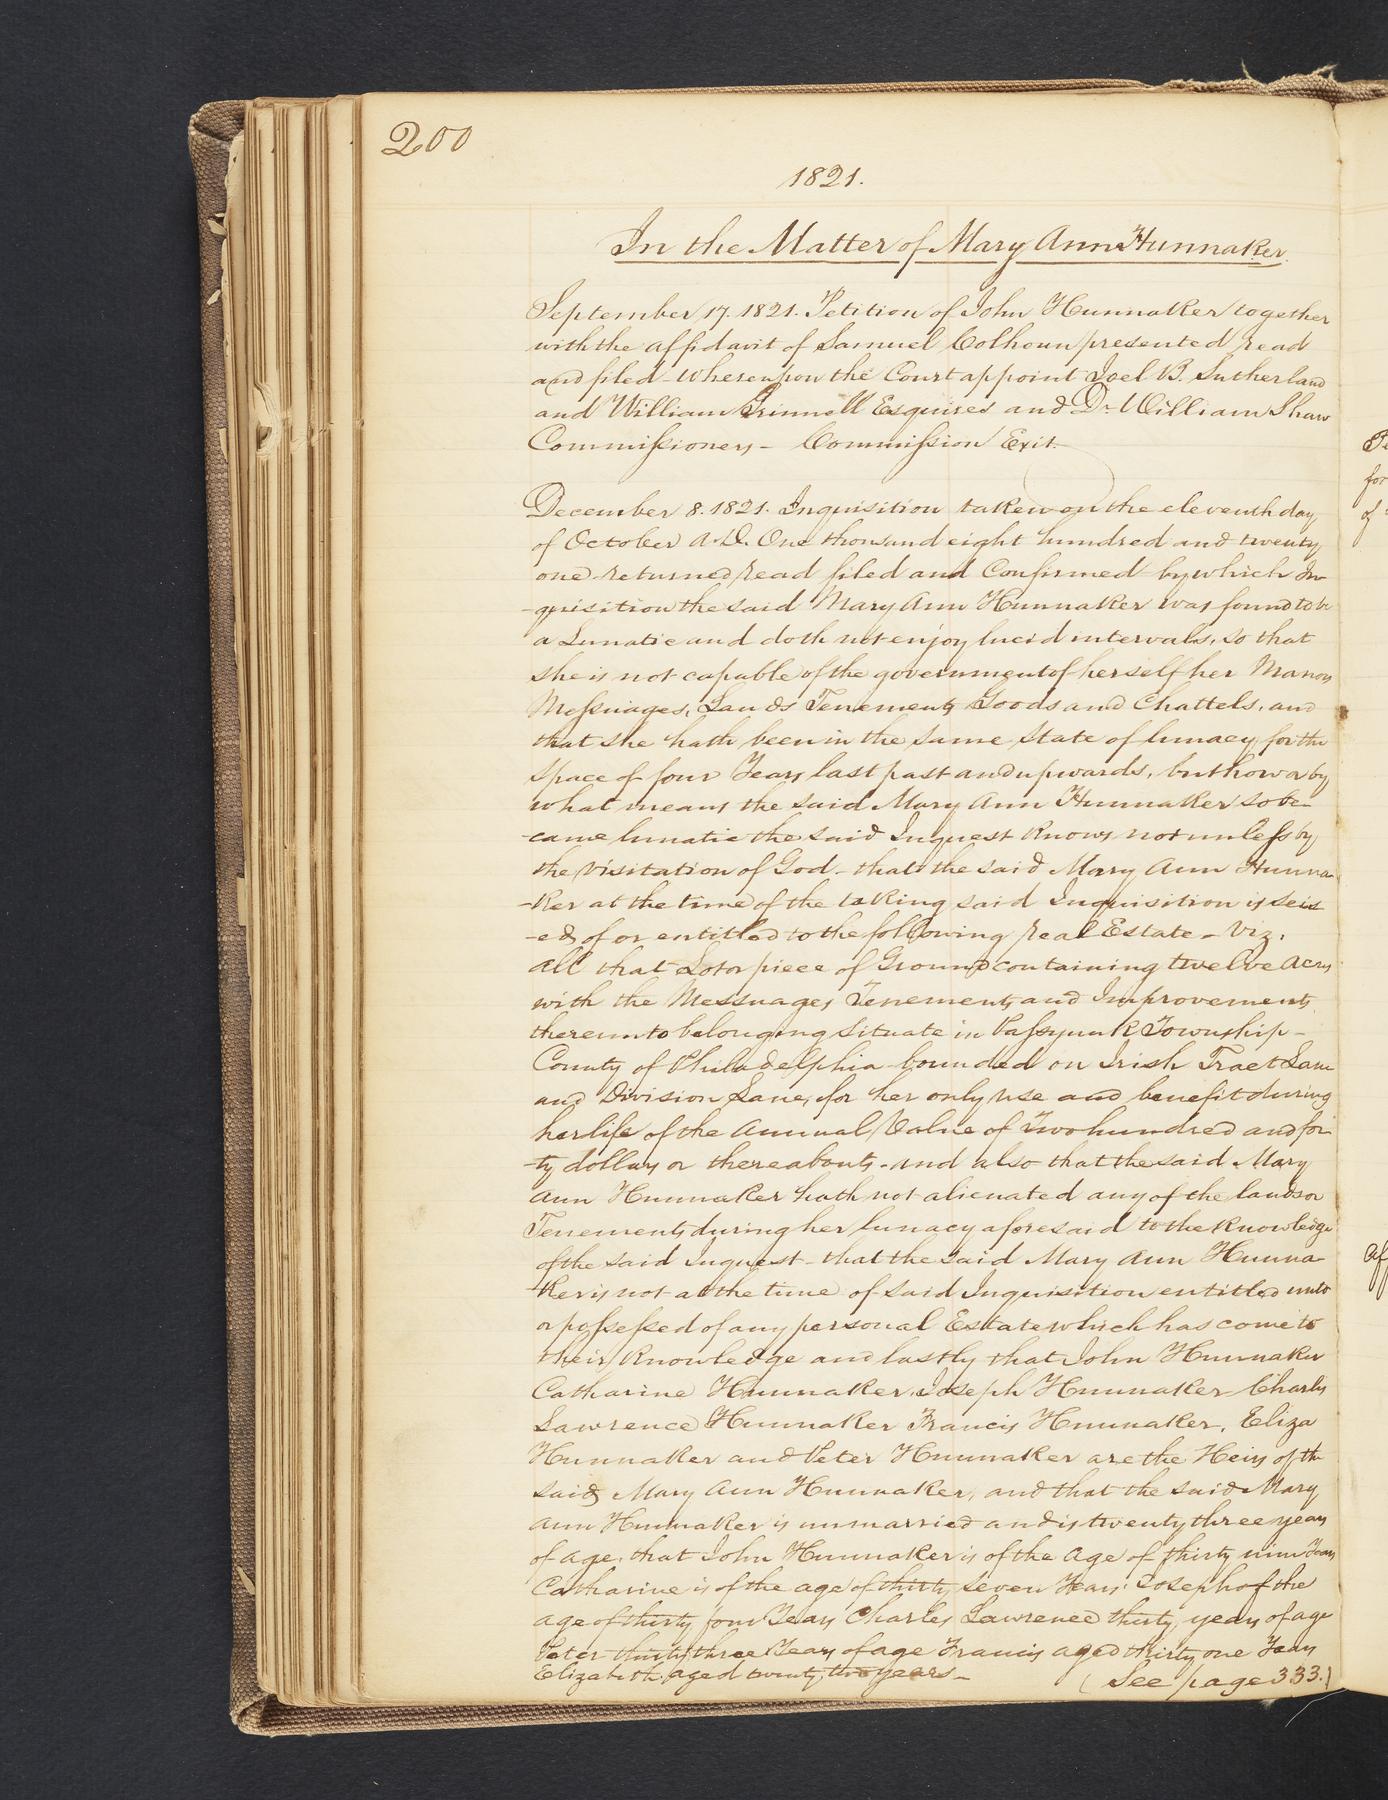 200
1821.
In the Matter of Mary Ann Hunnaker.
September 17. 1821. Petition of John Hunnaker together
with the affidavit of Samuel Colhoun presented read
and filed - whereupon the Court appoint Joel B. Sutherland
and William Grinnell Esquires and Dr. William Shaw
Commissioners - Commission Exit.
December 8. 1821. Inquisition taken on the eleventh day
of October A.D. One thousand eight hundred and twenty
one returned read filed and Confirmed by which In-
-quisition the said Mary Ann Hunnaker was found to be
a Lunatic and doth not enjoy lucid intervals, so that
she is not capable of the government of herself her Manors
Messuages, Lands Tenements Goods and Chattels, and
that she hath been in the same State of lunacy for the
space of four Years last past and upwards, but how or by
what means the said Mary Ann Hunnaker so be-
-came lunatic the said Inquest Knows not unless by
the visitation of God - that the said Mary Ann Hunna-
-Ker at the time of the taking said Inquisition is seis
-ed of or entitled to the following real Estate - Viz.
All that Lot or piece of Ground containing twelve Acres
with the Messuages Tenements and Improvements
thereunto belonging Situate in Passyunk Township -
County of Philadelphia bounded on Irish Tract Lane
and Division Lane, for her only use and benefit during
her life of the Annual Value of Two hundred and for-
-ty dollars or thereabouts - and also that the said Mary
Ann Hunnaker hath not alienated any of the lands or
Tenements during her lunacy aforesaid to the Knowledge
of the said Inquest - that the said Mary Ann Hunna-
-Ker is not at the time of said Inquisition entitled unto
or possessed of any personal Estate which has come to
their Knowledge and lastly that John Hunnaker
Catharine Hunnaker, Joseph Hunnaker Charles
Lawrence Hunnaker Francis Hunnaker, Eliza
Hunnaker and Peter Hunnaker are the Heirs of the
said Mary Ann Hunnaker, and that the said Mary
Ann Hunnaker is unmarried and is twenty three years
of age, that John Hunnaker is of the Age of thirty nine Years
Catharine is of the age of thirty seven Years Joseph of the
age of thirty four Years Charles Lawrence thirty years of age
Peter thirty three Years of age Francis aged thirty one Years
Elizabeth aged twenty two years -
(See page 333.)